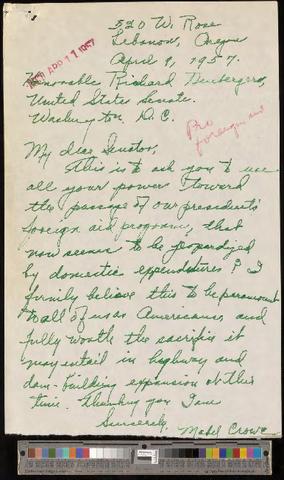 520 W. Rose
Lebanon, Oregon
April 9, 1957.
APR 11 1957
Honorable Richard Neuberger,
United States Senate.
Washington, D.C.
Pro
foreign aid
My dear Senator,
This is to ask you to use
all your power toward
the passage of our president's
foreign aid program, that
now seems to be jeopardized
by domestic expenditures. I
firmly believe this to be paramount
to all of us as Americans and
fully worth the sacrifice it
may entail in highway and
dam-building expansion at this
time. Thanking you I am
Sincerely,
Mabel Crowe